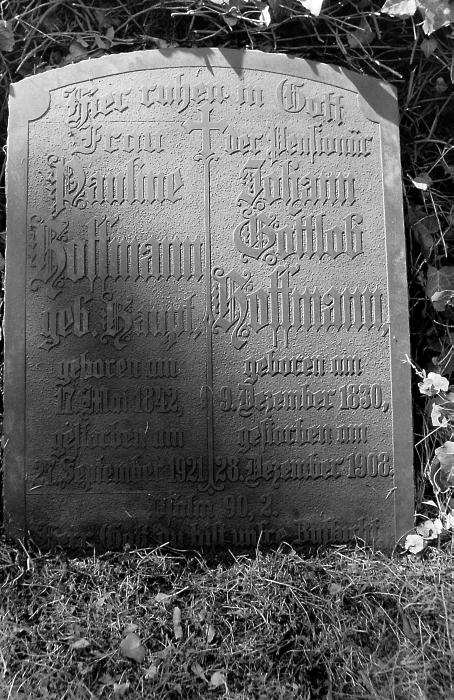 Hier ruhen in Gott
Frau
Pauline
Hoffmann
geb. Haupt,
geboren am
17. Mai 1842,
gestorben am
27. September 1921
der Pensionär
Johann
Gottlob
Hoffmann,
geboren am
9. Dezember 1830,
gestorben am
28. Dezember 1908.
Psalm 90, 2.
Herr Gott du bist unsre Zuflucht